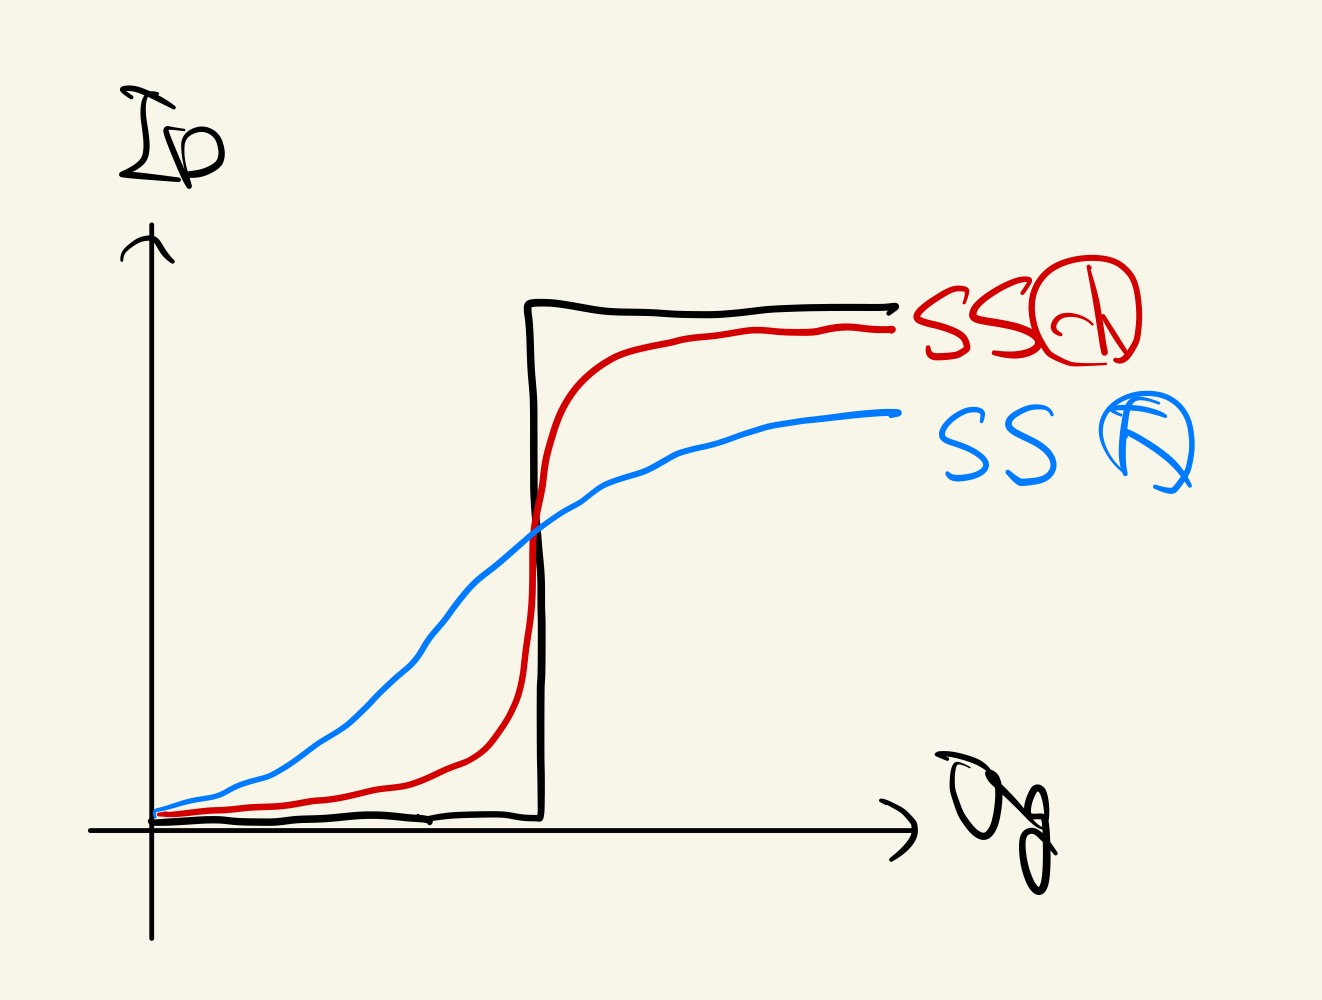 ID
SS小
SS大
Vg